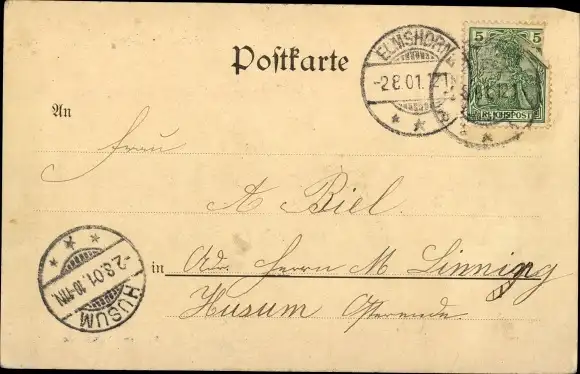 Postkarte
ELMSHORN
-2.8.01.
5 5
REICHSPOST
An
Frau
A Biel.
in Adr. Herrn M. Linning
Husum Osterende.
HUSUM
-2.8.01.10-11N.